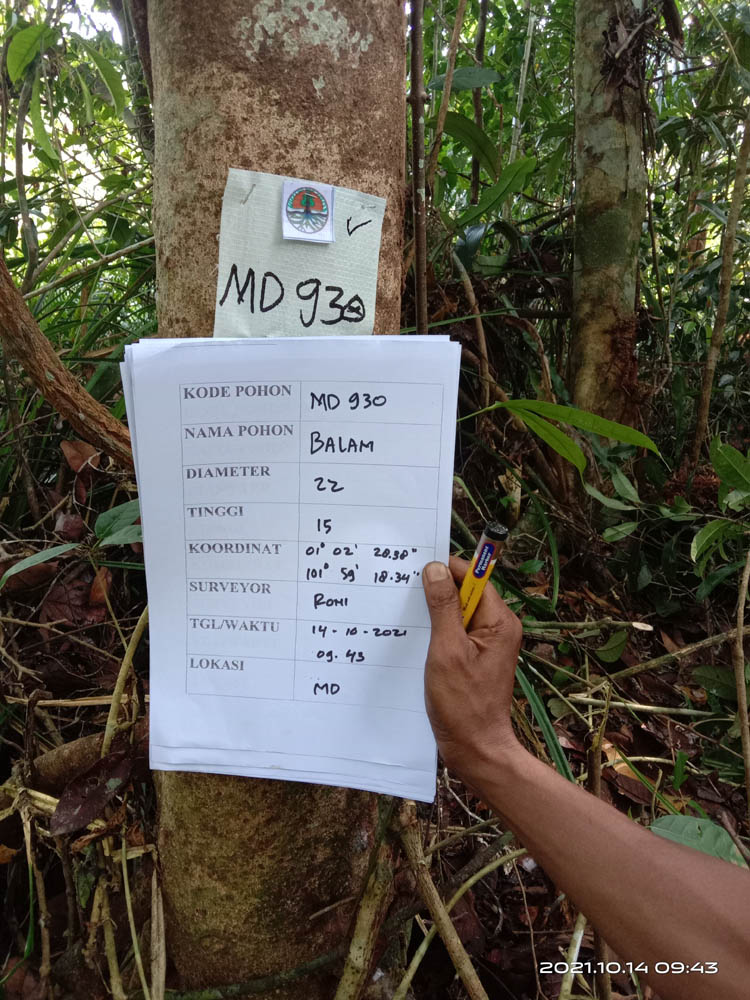 MD 930
KODE POHON MD 930
NAMA POHON BALAM
DIAMETER 22
TINGGI 15
KOORDINAT 01° 02' 28.98"
101° 59' 18.34"
SURVEYOR ROMI
TGL/WAKTU 14-10-2021
09.43
LOKASI MD
Permanent
Marker
2021.10.14 09:43